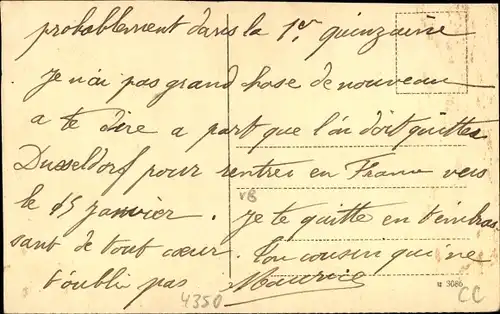 probablement dans la 1er quinzaine
Je n'ai pas grand hose de nouveau
a te dire a part que l'on doit quitter
Dusseldorf pour rentrer en France vers
le 15 janvier. Je te quitte en t'embras
VB
sant de tout cœur. Ton cousin qui ne
t'oubli pas Maurice
u 3686
4350
CC